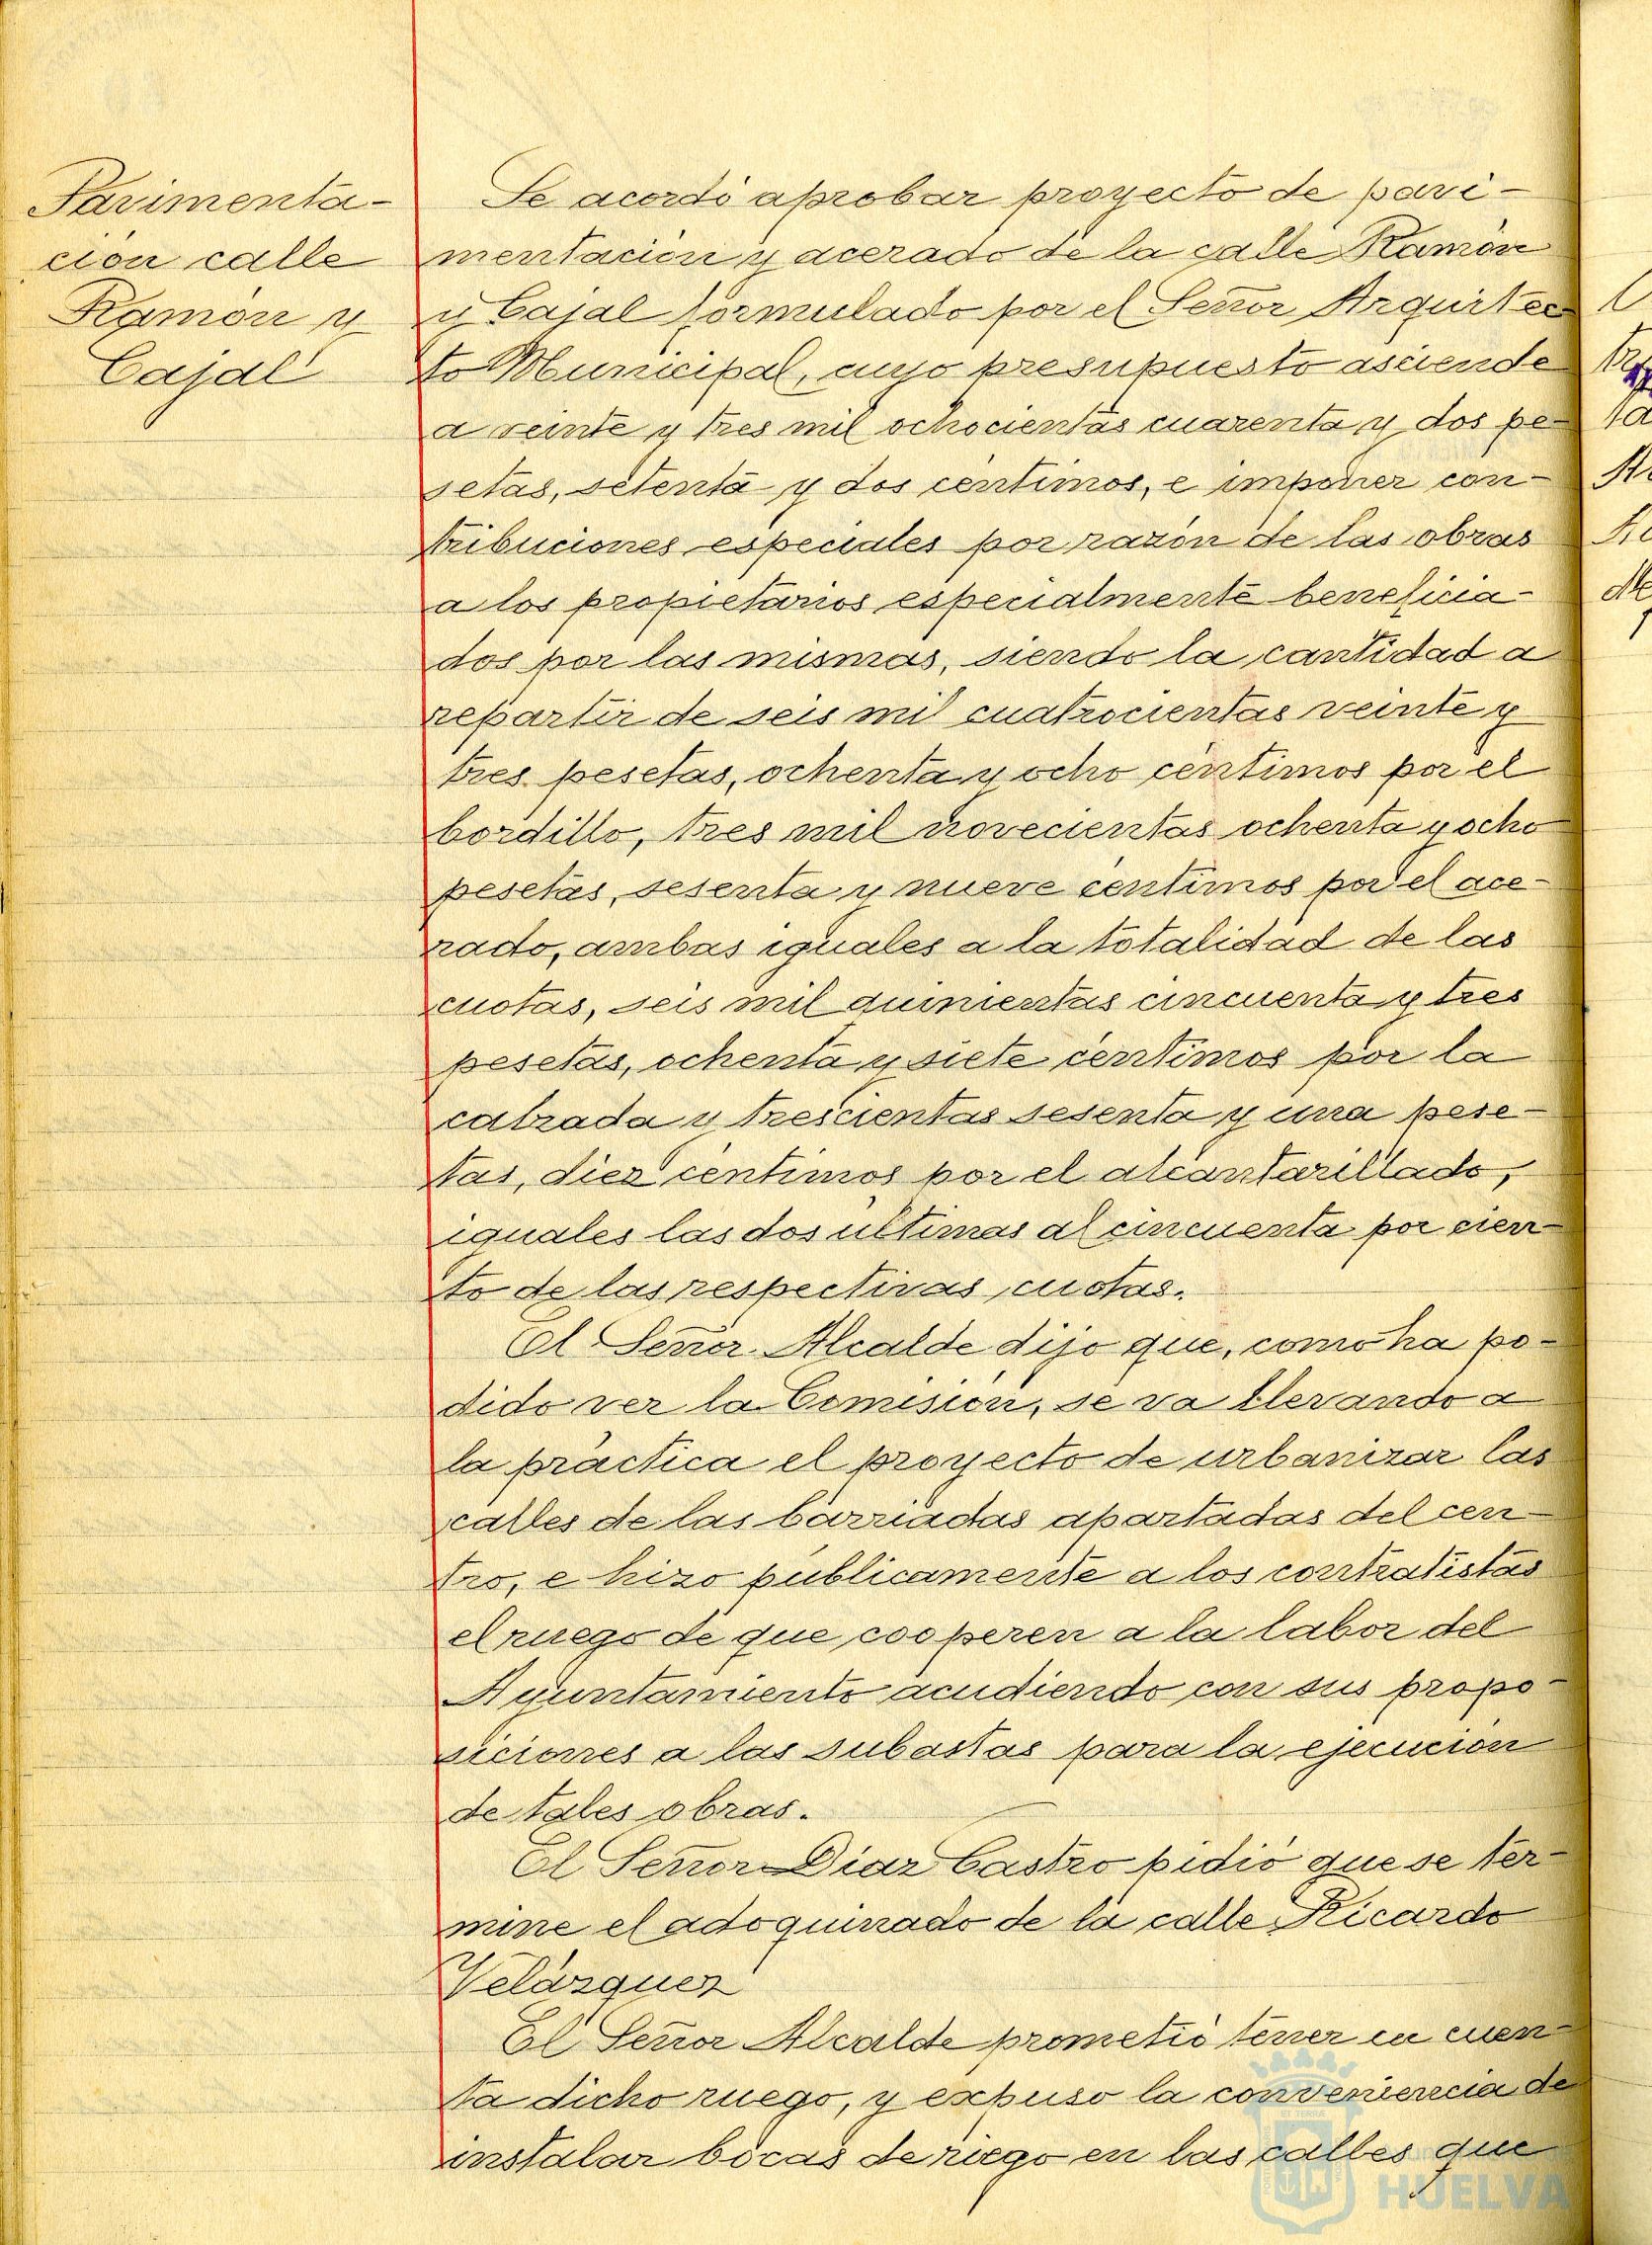 Pavimenta-
ción calle
Ramón y
Cajal
Se acordó aprobar proyecto de pavi-
mentación y acerado de la calle Ramón
y Cajal formulado por el Señor Arquitec-
to Municipal, cuyo presupuesto asciende
a veinte y tres mil ochocientas cuarenta y dos pe-
setas, setenta y dos céntimos, e imponer con-
tribuciones especiales por razón de las obras
a los propietarios especialmente beneficia-
dos por las mismas, siendo la cantidad a
repartir de seis mil cuatrocientas veinte y
tres pesetas, ochenta y ocho céntimos por el
bordillo, tres mil novecientas ochenta y ocho
pesetas, sesenta y nueve céntimos por el ace-
rado, ambas iguales a la totalidad de las
cuotas, seis mil quinientas cincuenta y tres
pesetas, ochenta y siete céntimos por la
calzada y trescientas sesenta y una pese-
tas, diez céntimos por el alcantarillado,
iguales las dos últimas al cincuenta por cien-
to de las respectivas cuotas.
El Señor Alcalde dijo que, como ha po-
dido ver la Comisión, se va llevando a
la práctica el proyecto de urbanizar las
calles de las barriadas apartadas del cen-
tro, e hizo públicamente a los contratistas
el ruego de que cooperen a la labor del
Ayuntamiento acudiendo con sus propo-
siciones a las subastas para la ejecución
de tales obras.
El Señor Díaz Castro pidió que se ter-
mine el adoquinado de la calle Ricardo
Velázquez
El Señor Alcalde prometió tener en cuen-
ta dicho ruego, y expuso la conveniencia de
instalar bocas de riego en las calles que
HUELVA